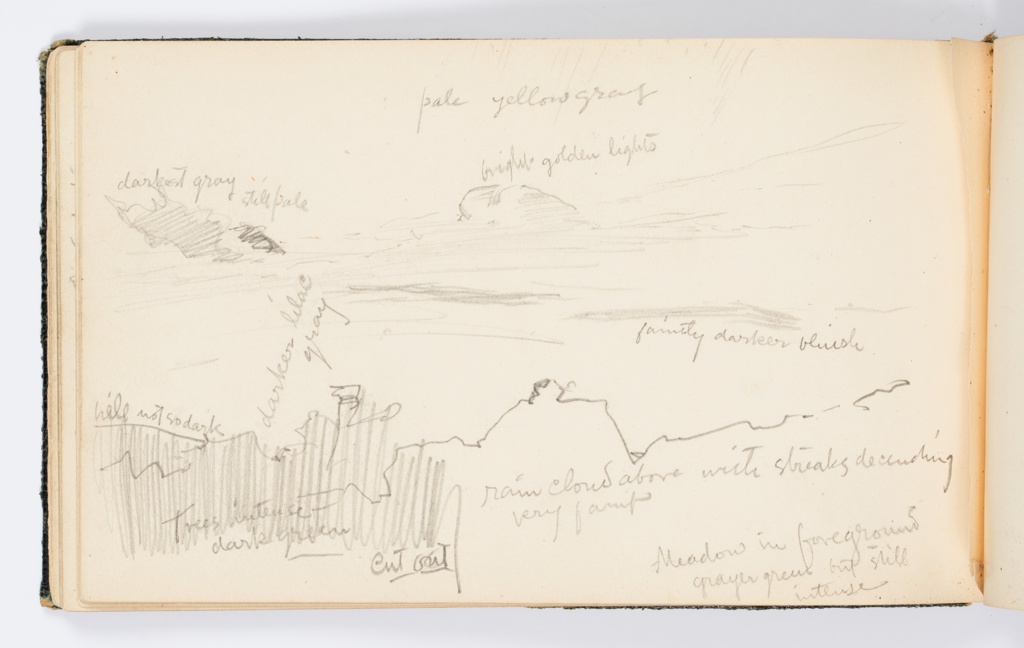 pale yellow gray
bright golden lights
darkest gray
still pale
darker lilac
gray
faintly darker bluish
hill not so dark
rain cloud above with streaks decending
very faint
Trees intense
dark green
Cut out
Meadow in foreground
grayer green but still
intense